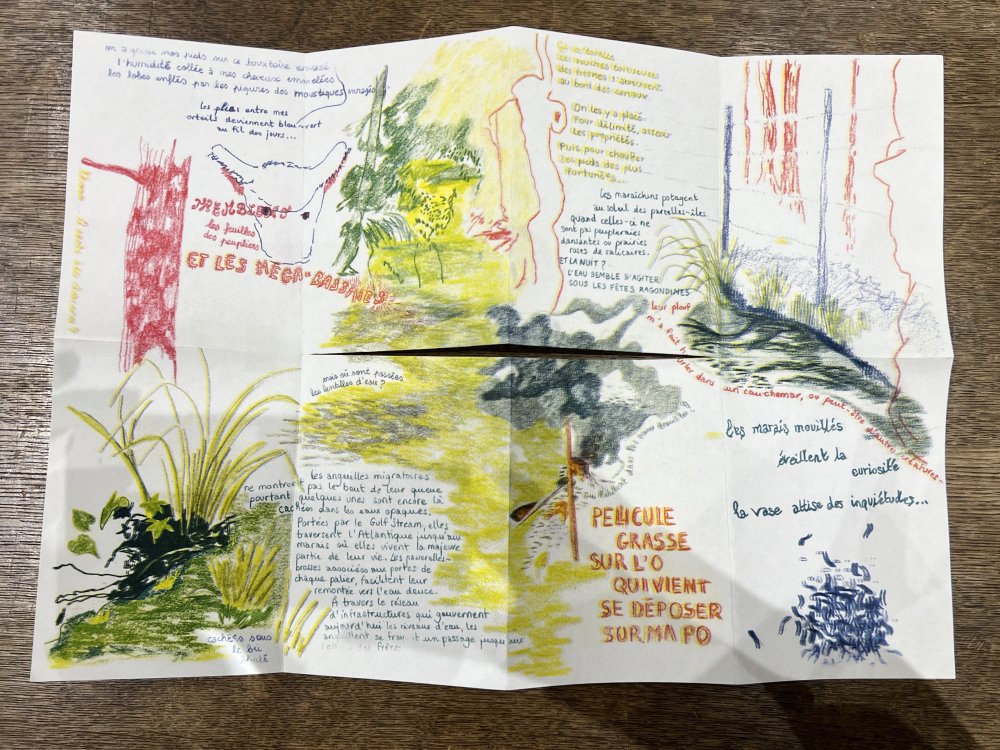 on a glissé nos pieds sur ce territoire
l'humidité collée à nos cheveux emmelées
les lobes enflés par les piqûres des moustiques
les plies entre mes
orteils deviennent bleu-vert
au fil des jours...
TREMBLENT
les feuilles
des peupliers
ET LES MEGA-BASSINES
les souches tortueuses
des fresnes s'abreuvent
au bord des canaux.
On les y a placé.
Pour délimité, asseoir
les propriétés.
Puis pour chauffer
les pieds des plus
fortunés...
les maraîchins potagent
au soleil des parcelles-îles
quand celles-ci ne
sont pas peupleraies
dansantes ou prairies
roses de salicaires.
ET LA NUIT?
L'EAU SEMBLE S'AGITER
SOUS LES FÊTES RAGONDINES
leur plouf
m'a fait dans un cauchemar, ou peut-être d'autres créatures-
mais où sont passées
les lentilles d'eau?
les anguilles migratoires
ne montrent pas le bout de leur queue
pourtant quelques unes sont encore là
dans les eaux opaques.
Portées par le Gulf Stream, elles
traversent l'Atlantique jusqu'aux
marais où elles vivent la majeure
partie de leur vie. Les passerelles-
brosses associées aux portes de
chaque palier, facilitent leur
remontée vers l'eau douce.
À travers le réseau
d'infrastructures qui gouvernent
aujourd'hui les niveaux d'eau, les
se un passage jusqu'aux
des frênes
cachés sous
le
PELLICULE
GRASSE
SUR L'O
QUI VIENT
SE DÉPOSER
SUR MA PO
les marais mouillés
éveillent la
curiosité
la vase attise des inquiétudes...